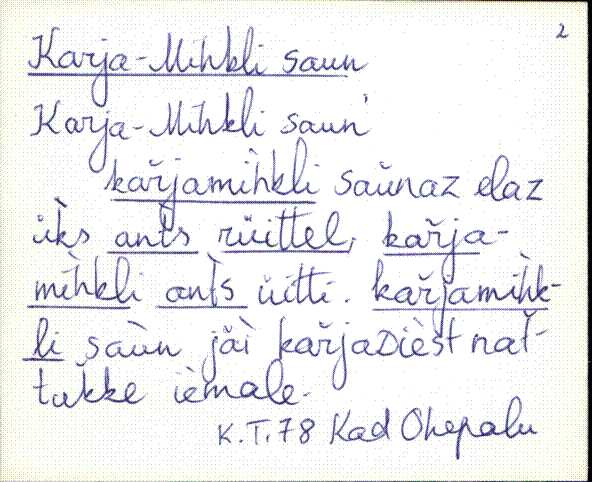 2
Karja-Mihkli saun
Karja-Mihkli saun'
kařjamìhkli saŭnaz elaz
üks ants rüittel, kařja-
mìhkli ants üitti. kařjamìhk-
li saùn jäi kařjaDièst nať-
tukke ièmale.
K.T.78 Kad Ohepalu